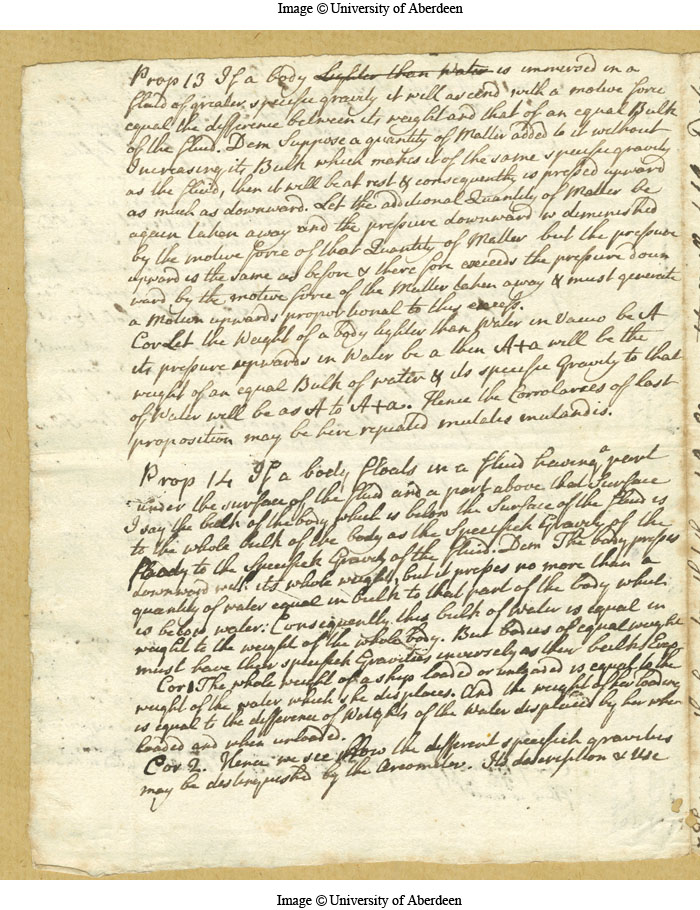 Image © University of Aberdeen
Prop 13 If a body lighter than water is immersed in a
fluid of greater specific gravity it will ascend with a motive force
equal the difference between its weight and that of an equal Bulk
of the fluid. Dem Suppose a quantity of Matter added to it without
Increasing its Bulk which makes it of the same specific gravity
as the fluid, then it will be at rest & consequently is pressed upward
as much as downward. Let the additional Quantity of Matter be
again taken away and the pressure downward is deminished
by the motive force of that Quantity of Matter but the pressure
upward is the same as before & therefore exceeds the pressure down
ward by the motive force of the Matter taken away & must generate
a Motion upwards proportional to this excess.
Cor Let the Weight of a body lighter than Water in Vacuo be A
its pressure upwards in Water be a then A+a will be the
weight of an equal Bulk of water & its specific Gravity to that
of Water will be as A to A+a. Hence the Corrolaries of last
proposition may be here repeated mutatis mutandis.
Prop 14 If a body floats in a fluid having a part
under the surface of the fluid and a part above that Surface
I say the bulk of the body which is below the Surface of the fluid is
to the whole bulk of the body as the Specifick Gravity of the
body to the Specifick Gravity of the fluid. Dem The body presses
downward with its whole weight, but it presses no more than a
quantity of water equal in bulk to that part of the body which
is below water: Consequently this bulk of Water is equal in
weight to the weight of the whole body. But bodies of equal weight
must have their specifick Gravities inversely as their bulks Ergo
Cor 1 The whole weight of a ship loaded or unloaded is equal to the
weight of the water which she displaces. And the weight of her loading
is equal to the difference of Weights of the Water displaced by her when
loaded and when unloaded.
Cor 2. Hence we see How the different specifick gravities
may be destinguished by the Areometer. Its description & Use
Image © University of Aberdeen